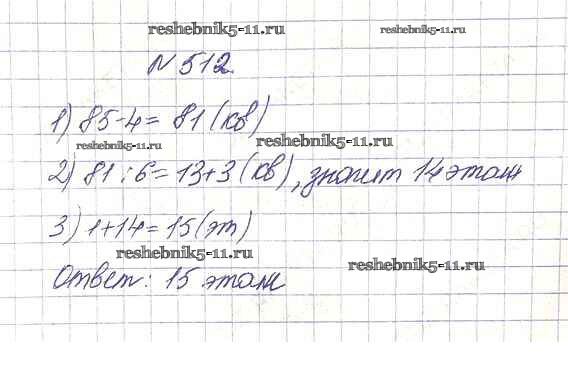 reshebnik5-11.ru reshebnik5-11.ru
N 512.
1) 85-4= 81 (кв)
reshebnik5-11.ru reshebnik5-11.ru
2) 81:6= 13+3 (кв), значит 14 этаж
3) 1+14=15 (эт)
reshebnik5-11.ru reshebnik5-11.ru
Ответ: 15 этаж